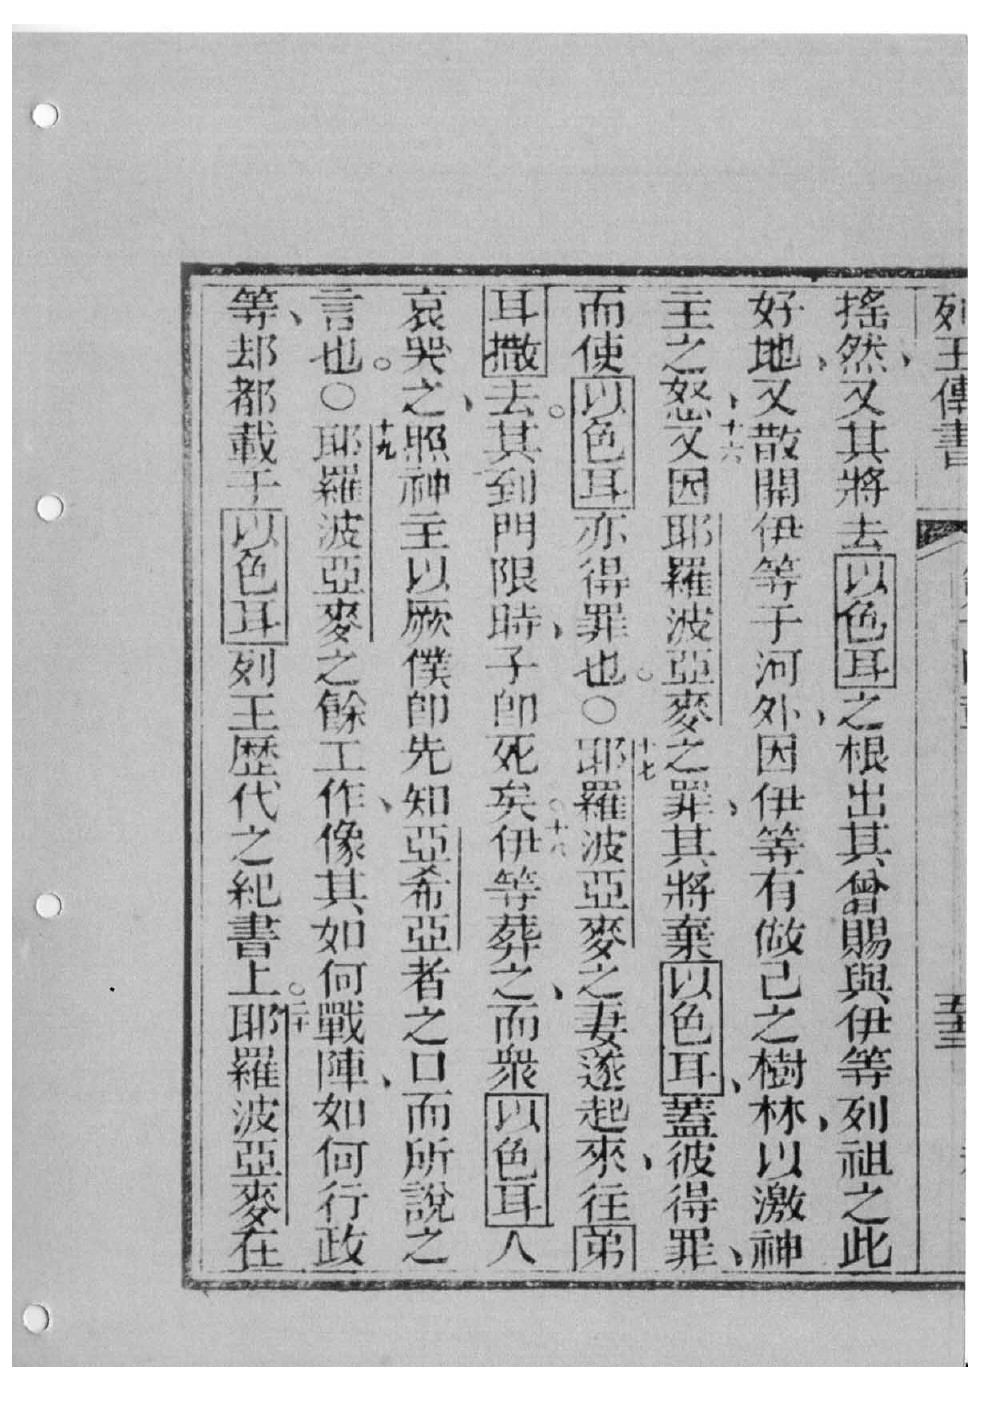 列王傳書
五十三
搖然、又其將去以色耳之根出其曾賜與伊等列祖之此
好地、又散開伊等于河外、因伊等有做己之樹林、以激神
主之怒、十六又因耶羅波亞麥之罪、其將棄以色耳、蓋彼得罪、
而使以色耳亦得罪也。○十七耶羅波亞麥之妻遂起來、往弟
耳撒去。其到門限時、子即死矣。十八伊等葬之、而衆以色耳人
哀哭之、照神主以厥僕即先知亞希亞者之口而所說之
言也。○十九耶羅波亞麥之餘工作、像其如何戰陣、如何行政
等、却都載于以色耳列王歷代之紀書上。二十耶羅波亞麥在